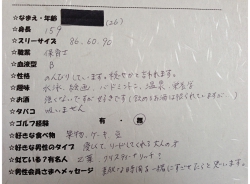 ☆なまえ・年齢 (26)
☆身長 159
☆スリーサイズ 86.60.90
☆職業 保育士
☆血液型 B
☆性格 のんびりしています。穏やかと言われます。
☆趣味 水泳、映画、バドミントン、温泉、
☆お酒 強くないですが好きです
☆タバコ 吸いません
☆ゴルフ経験 有・無
☆好きな食べ物 果物、ケーキ、豆
☆好きな男性のタイプ 優しくて、リードしてくれる大人の方
☆似ている?有名人
☆男性会員さまへメッセージ 素敵な時間を一緒にすごせたらと思います。